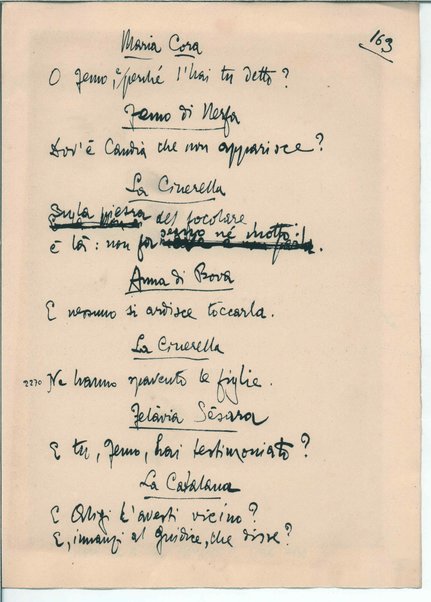 163
Maria Cora
O Jemo, e perché l'hai tu detto?
Jemo di Nerfa
Dov'è Candia che non apparisce?
La Cinerella
Sulla pietra del focolare
è là: non fa segno né motto!
Anna di Bova
E nessuno si ardisce toccarla.
La Cinerella
2270 Ne hanno spavento le figlie.
Felàvia Sèsara
E tu, Jemo, hai testimoniato?
La Catalana
E Aligi l'avesti vicino?
E, innanzi al giudice, che disse?